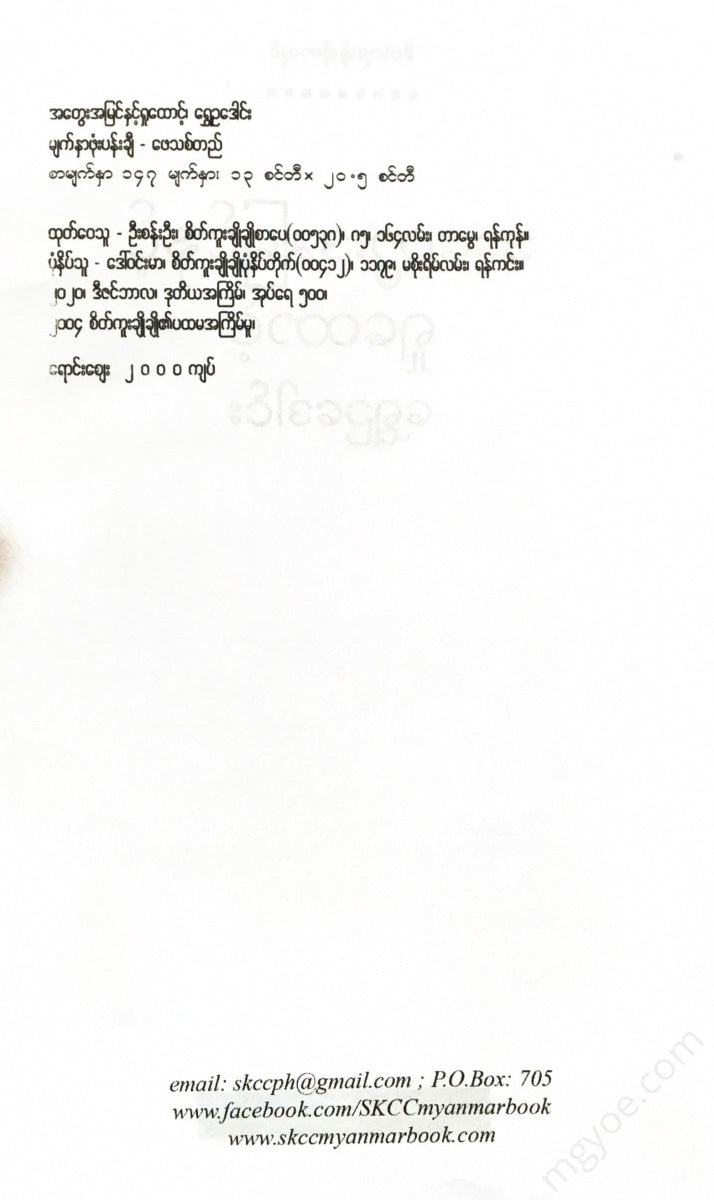 အတွေးအမြင်နှင့်ရှုထောင့်၊ ရွှေဥဒေါင်း
မျက်နှာဖုံးပန်းချီ - ဖေသစ်တည်
စာမျက်နှာ ၁၄၇ မျက်နှာ၊ ၁၃ စင်တီ× ၂၀.၅ စင်တီ
ထုတ်ဝေသူ - ဦးစန်းဦး၊ စိတ်ကူးချိုချိုစာပေ(၀၀၅၃၈)၊ ၈၅၊ ၁၆၄လမ်း၊ တာမွေ၊ ရန်ကုန်။
ပုံနှိပ်သူ - ဒေါ်ဝင်းမာ၊ စိတ်ကူးချိုချိုပုံနှိပ်တိုက်(၀၀၄၁၂)၊ ၁၁၇၉၊ မစိုးရိမ်လမ်း၊ ရန်ကင်း။
၂၀၂၀၊ ဒီဇင်ဘာလ၊ ဒုတိယအကြိမ်၊ အုပ်ရေ ၅၀၀၊
၂၀၀၄ စိတ်ကူးချိုချို၏ပထမအကြိမ်မူ၊
ရောင်းဈေး ၂ ၀ ၀ ၀ ကျပ်
email: skccph@gmail.com ; P.O.Box: 705
www.facebook.com/SKCCmyanmarbook
www.skccmyanmarbook.com
mgyoe.com